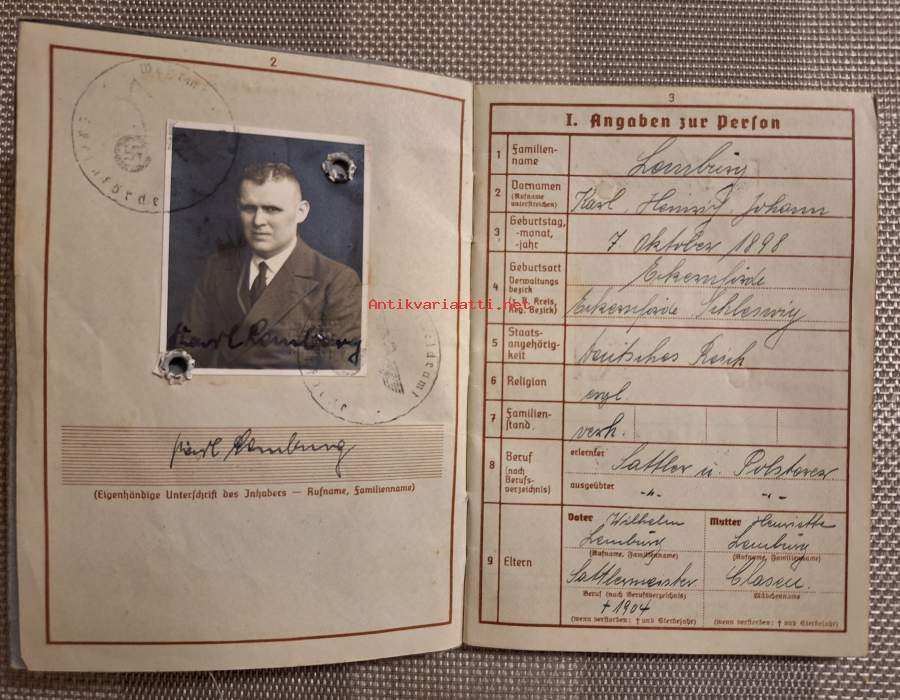 2
Antikvariaatti.net
Karl Lemburg
Karl Lemburg
(Eigenhändige Unterschrift des Inhabers — Rufname, Familienname)
3
I. Angaben zur Person
1 Familien-
name
Lemburg
2 Vornamen
(Rufname
unterstreichen)
Karl Heinrich Johann
3 Geburtstag,
-monat,
-jahr
7. Oktober 1898
4 Geburtsort
Verwaltungs-
bezirk
(z.B. Kreis,
Reg.-Bezirk)
Eckernförde
Eckernförde Schleswig
5 Staats-
angehörig-
keit
Deutsches Reich
6 Religion
evgl.
7 Familien-
stand
verh.
8 Beruf
(nach
Berufs-
verzeichnis)
erlernter
Sattler u. Polsterer
ausgeübter
-"- -"-
9 Eltern
Vater Wilhelm
Lemburg
(Rufname, Familienname)
Sattlermeister
Beruf (nach Berufsverzeichnis)
† 1904
(wenn verstorben: † und Sterbejahr)
Mutter Henriette
Lemburg
(Rufname, Familienname)
Clasen.
Mädchenname
(wenn verstorben: † und Sterbejahr)